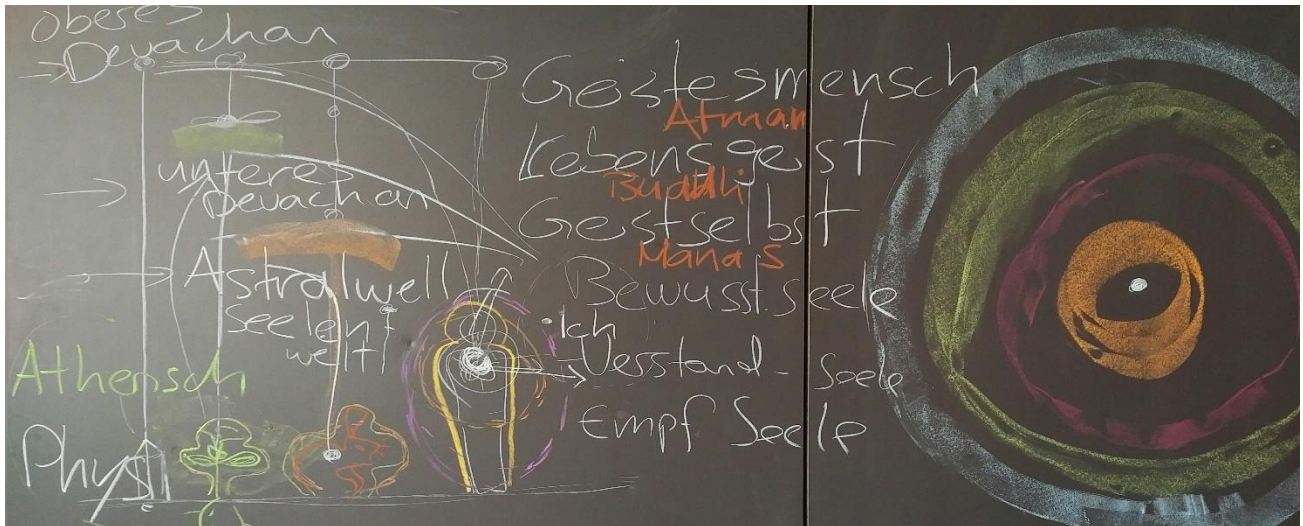 oberes
Devachan
unteres
Devachan
Astralwelt
seelen
welt
Äthersch
Physi
Geistesmensch
Atman
Lebensgeist
Buddhi
Geistselbst
Manas
Bewusst.seele
Ich
Verstand- seele
Empf Seele